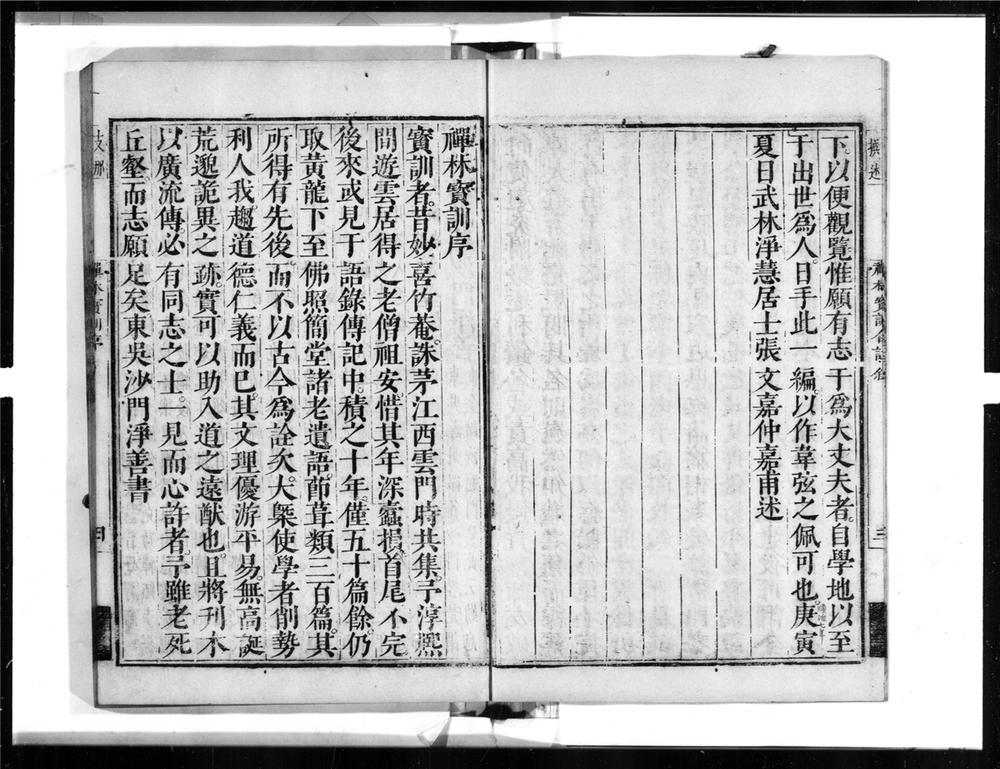 撰述
禪林寶訓合註敘
三
下。以便觀覽惟願有志于爲大丈夫者。自學地以至
于出世爲人日手此一編。以作韋弦之佩可也庚寅
夏日武林淨慧居士張文嘉仲嘉甫述
禪林寶訓序
寶訓者。昔妙喜竹菴。誅茅江西雲門時共集。予淳熙
間遊雲居得之老僧祖安。惜其年深蠹損首尾不完
後來或見于語錄傳記中積之十年。僅五十篇餘。仍
取黃龍下至佛照簡堂諸老遺語。節葺類三百篇。其
所得有先後。而不以古今爲詮次。大槩使學者削勢
利人我。趨道德仁義而已其文理優游平易。無高誕
荒邈詭異之跡。實可以助入道之遠猷也。且將刊木
以廣流傳。必有同志之士。見而心許者。予雖老死
丘壑。而志願足矣東吳沙門淨善書
支那
禪林寶訓序
四